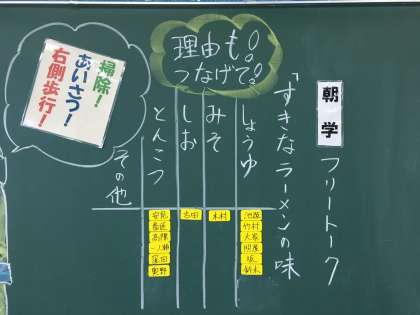 朝学
フリートーク
「すきなラーメンの味
理由も
つなげて!!
しょうゆ
みそ
しお
とんこつ
その他
掃除!
あいさつ!
右側歩行!
池端
竹村
大家
照屋
坂
鈴木
木村
吉田
高隈
窪田
奥野